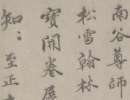 南谷尊師
松雪翰林
寳開卷展
知：至正